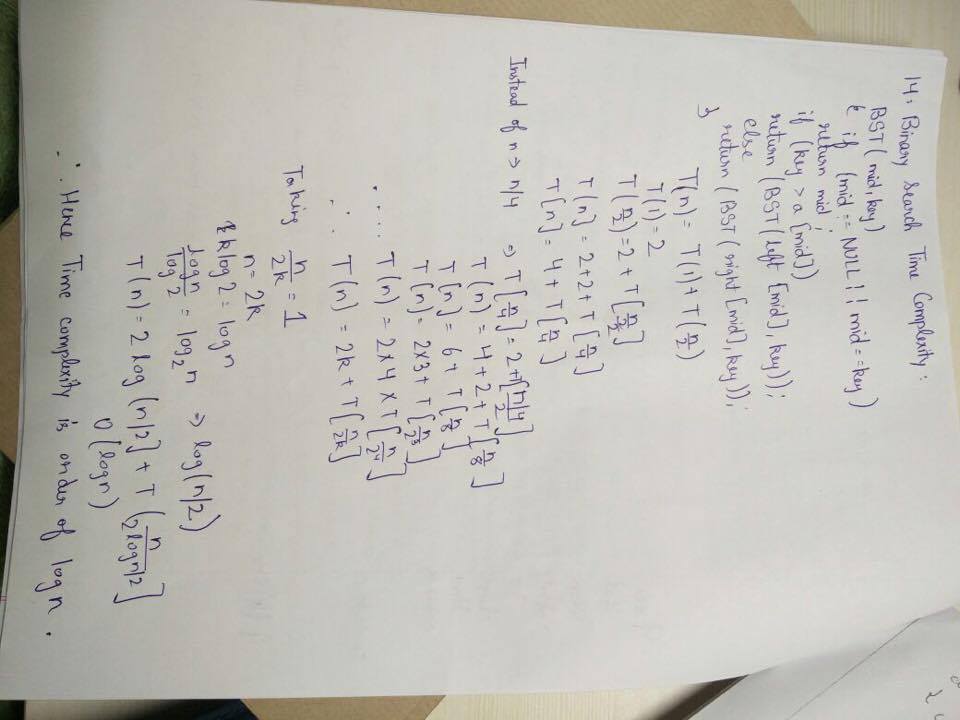 14. Binary Search Time Complexity :
BST( mid, key)
{ if (mid == NULL !! mid==key)
return mid ;
if (key > a [mid])
return (BST( left [mid], key));
else
return ( BST ( right [mid], key));
}
T(n) = T(1) + T(n/2)
T(1) = 2
T(n/2) = 2 + T[n/2/2]
T[n] = 2+2+ T[n/4]
T[n] = 4 + T[n/4]
Instead of n → n/4 ⇒ T[n/4] = 2+T[n/4/2]
T(n) = 4+2+T[n/8]
T[n] = 6+ T[n/8]
T[n] = 2x3+ T[n/2³]
..... T(n) = 2x4 x T[n/2⁴]
∴ T(n) = 2k + T[n/2k]
Taking n/2k = 1
n = 2k
k log 2 = log n
log n/log 2 = log₂n ⇒ log(n/2)
T(n) = 2 log (n/2] + T (n/2 log n/2]
O(log n)
∴ Hence Time complexity is order of log n .